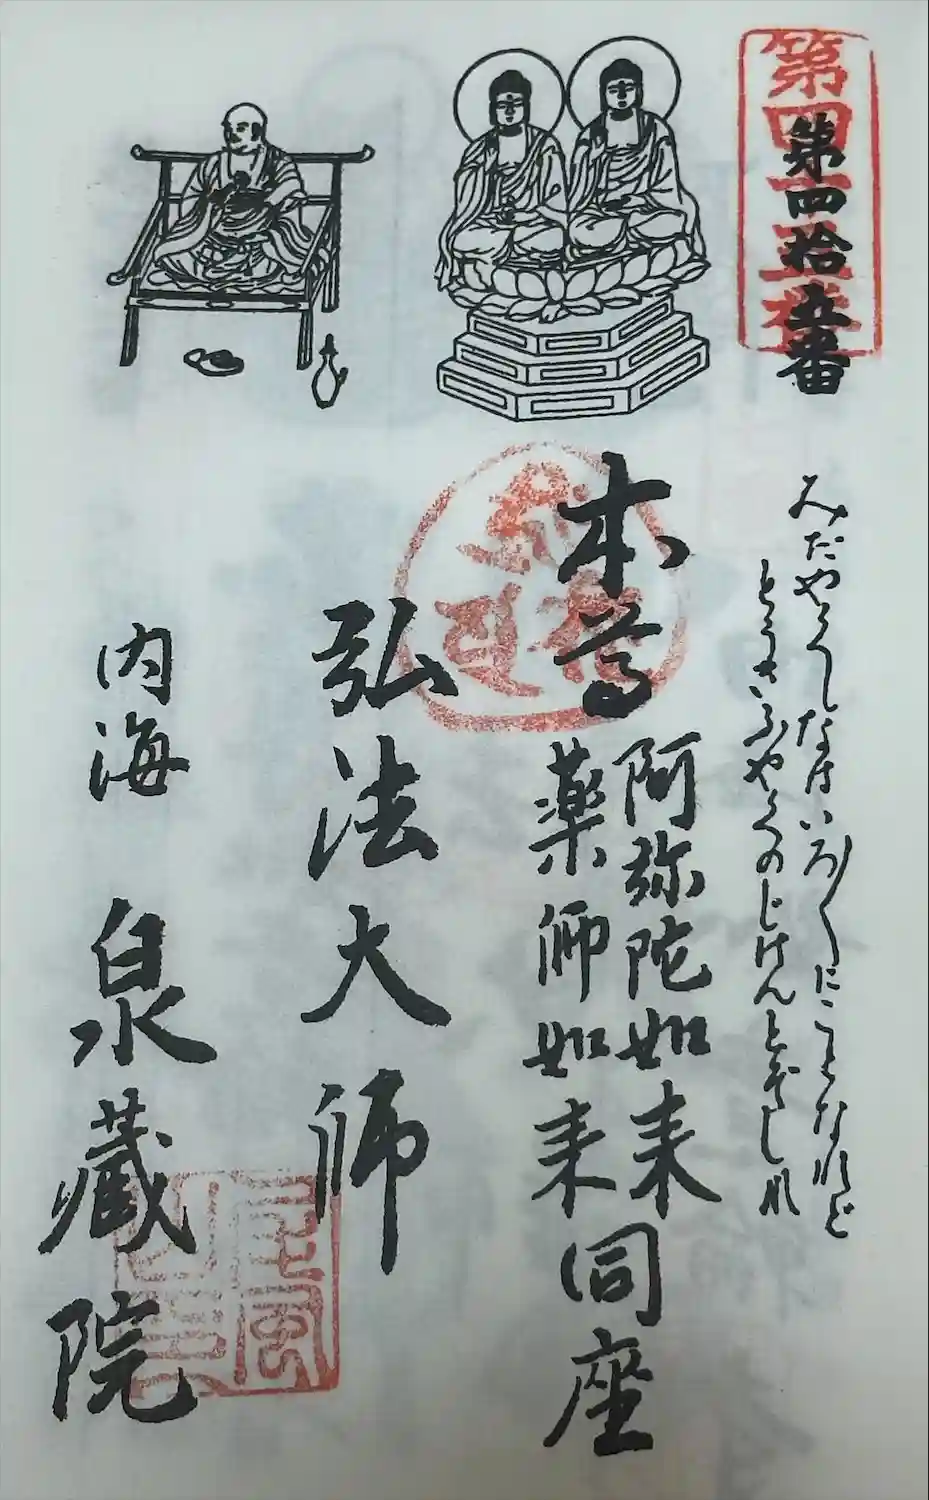 第四拾五番
みだやくしなはいろ〳〵にことなれど
とうさいふやくのじげんとぞしれ
本尊
阿弥陀如来
薬師如来
同座
弘法大師
内海 泉蔵院